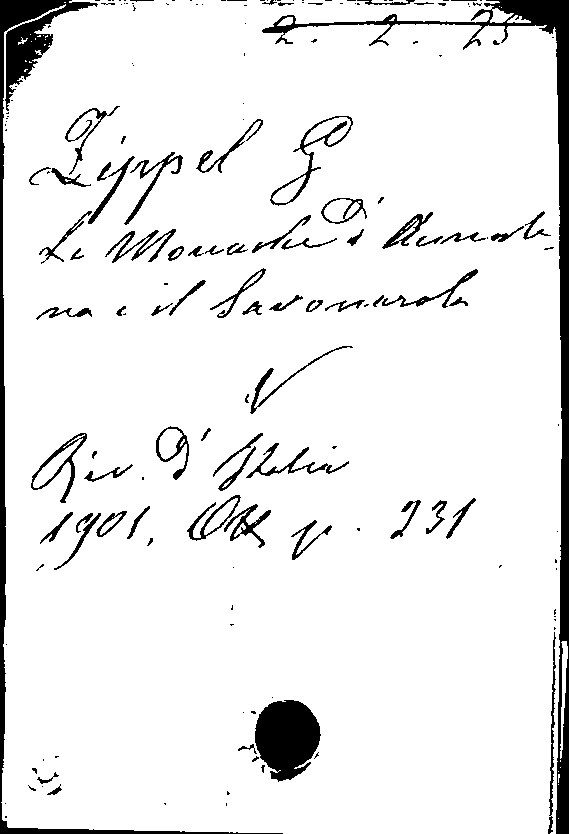 2. 2. 25
Zippel G
Le Monache d'Annale-
na e il Savonarola
Riv. d'Italia
1901, Ott, p. 231